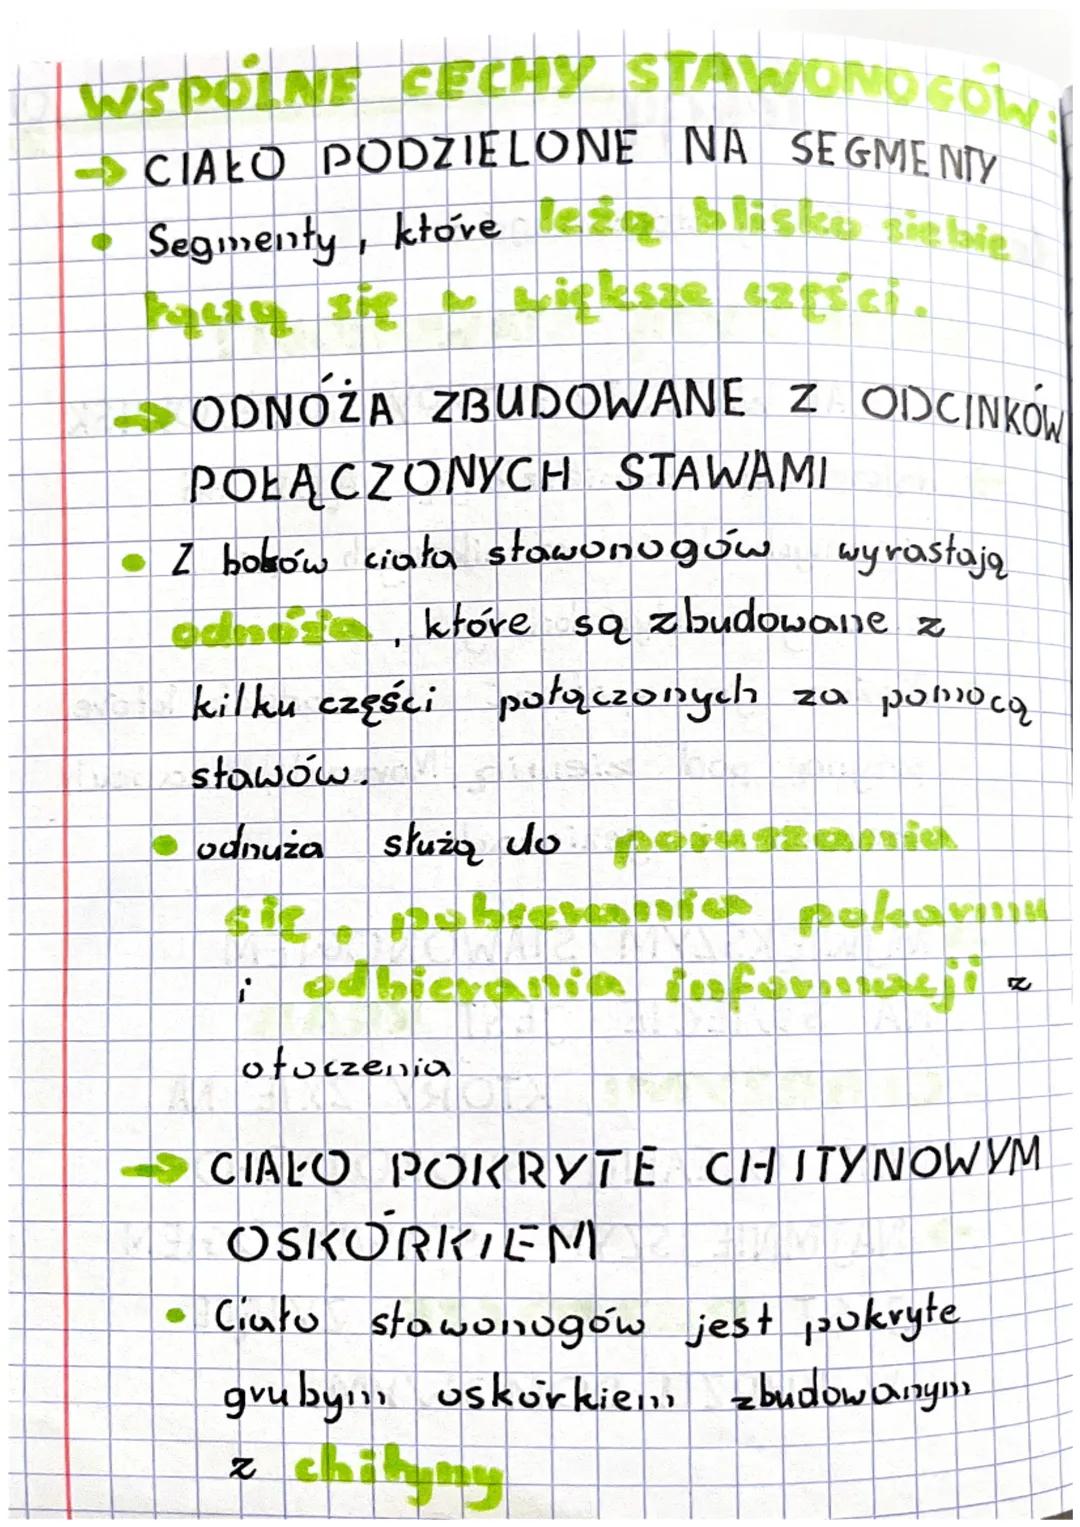 WSPÓLNE CECHY STAWONOGÓW:
→ CIAŁO PODZIELONE NA SEGMENTY
• Segmenty, które leżą blisko siebie
łączą się w większe części.
→ ODNÓŻA ZBUDOWANE Z ODCINKÓW
POŁĄCZONYCH STAWAMI
• Z boków ciała stawonogów wyrastają
odnóża, które są zbudowane z
kilku części połączonych za pomocą
stawów.
• odnuża służą do poruszania
się, pobierania pokarmu
i odbierania informacji z
otoczenia
→ CIAŁO POKRYTE CHITYNOWYM
OSKÓRKIEM
• Ciało stawonogów jest pokryte
grubym oskórkiem zbudowanym
z chityny